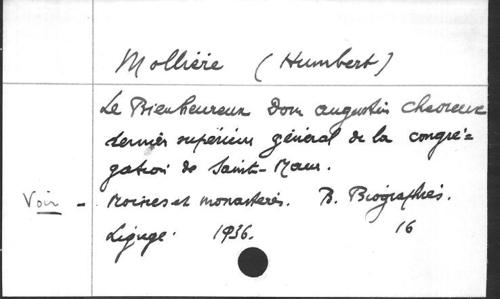 Mollière (Humbert)
Le Bienheureux Dom Augustin Chevreux
dernier supérieur général de la congré=
gation de Saint-Maur.
Voir - Moines et monastères. B. Biographies.
Ligugé. 1936. 16